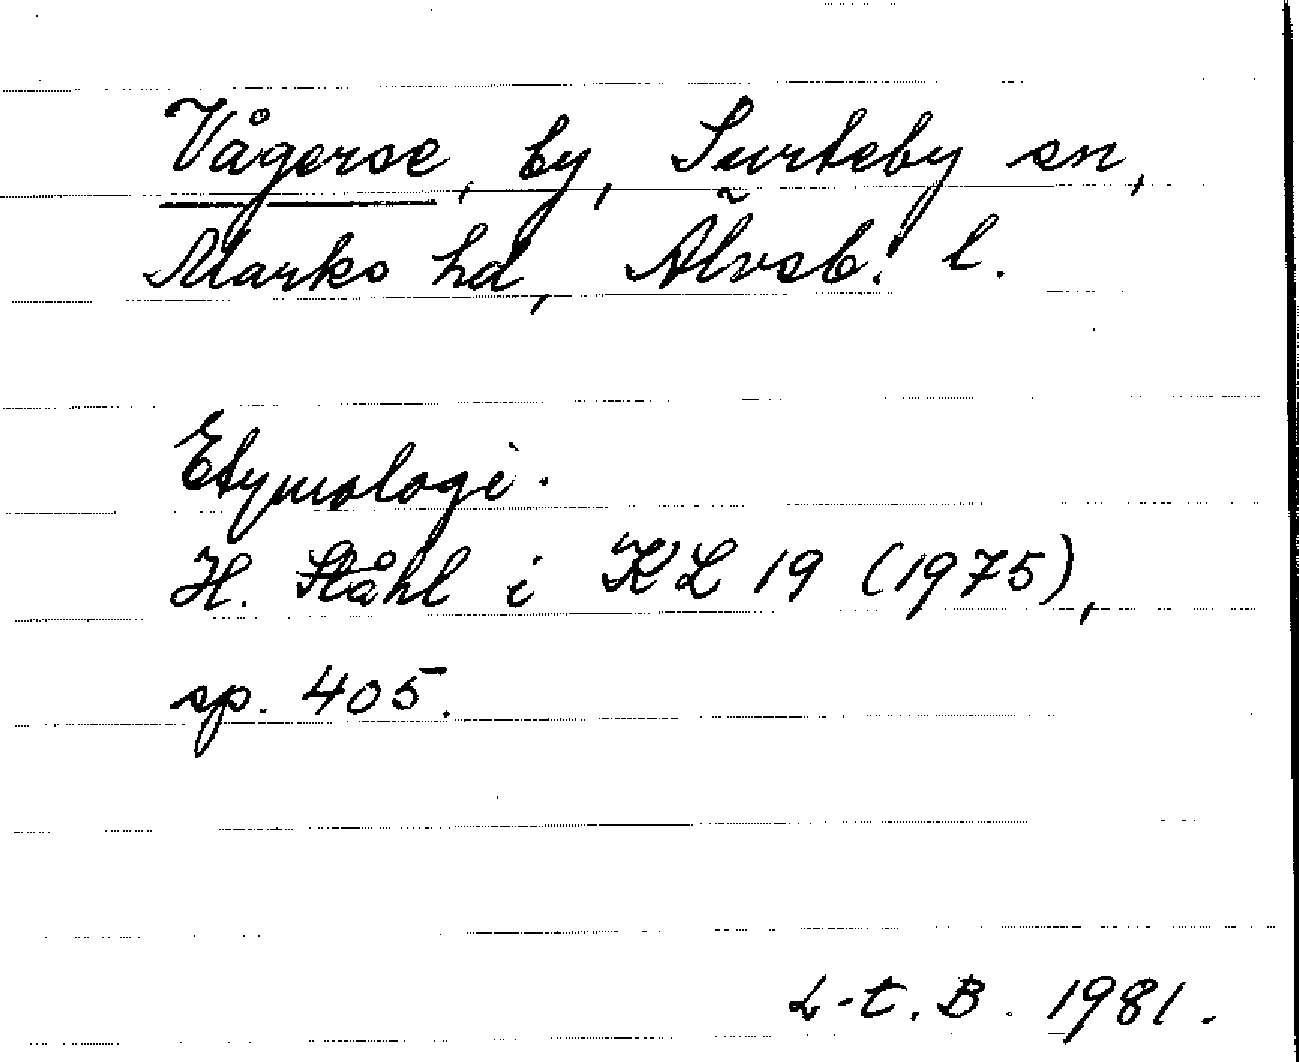 Vågerse, by, Surteby sn,
Marks hd, Älvsb. l.
Etymologi.
H. Ståhl i KL 19 (1975),
sp. 405.
L-t. B. 1981.